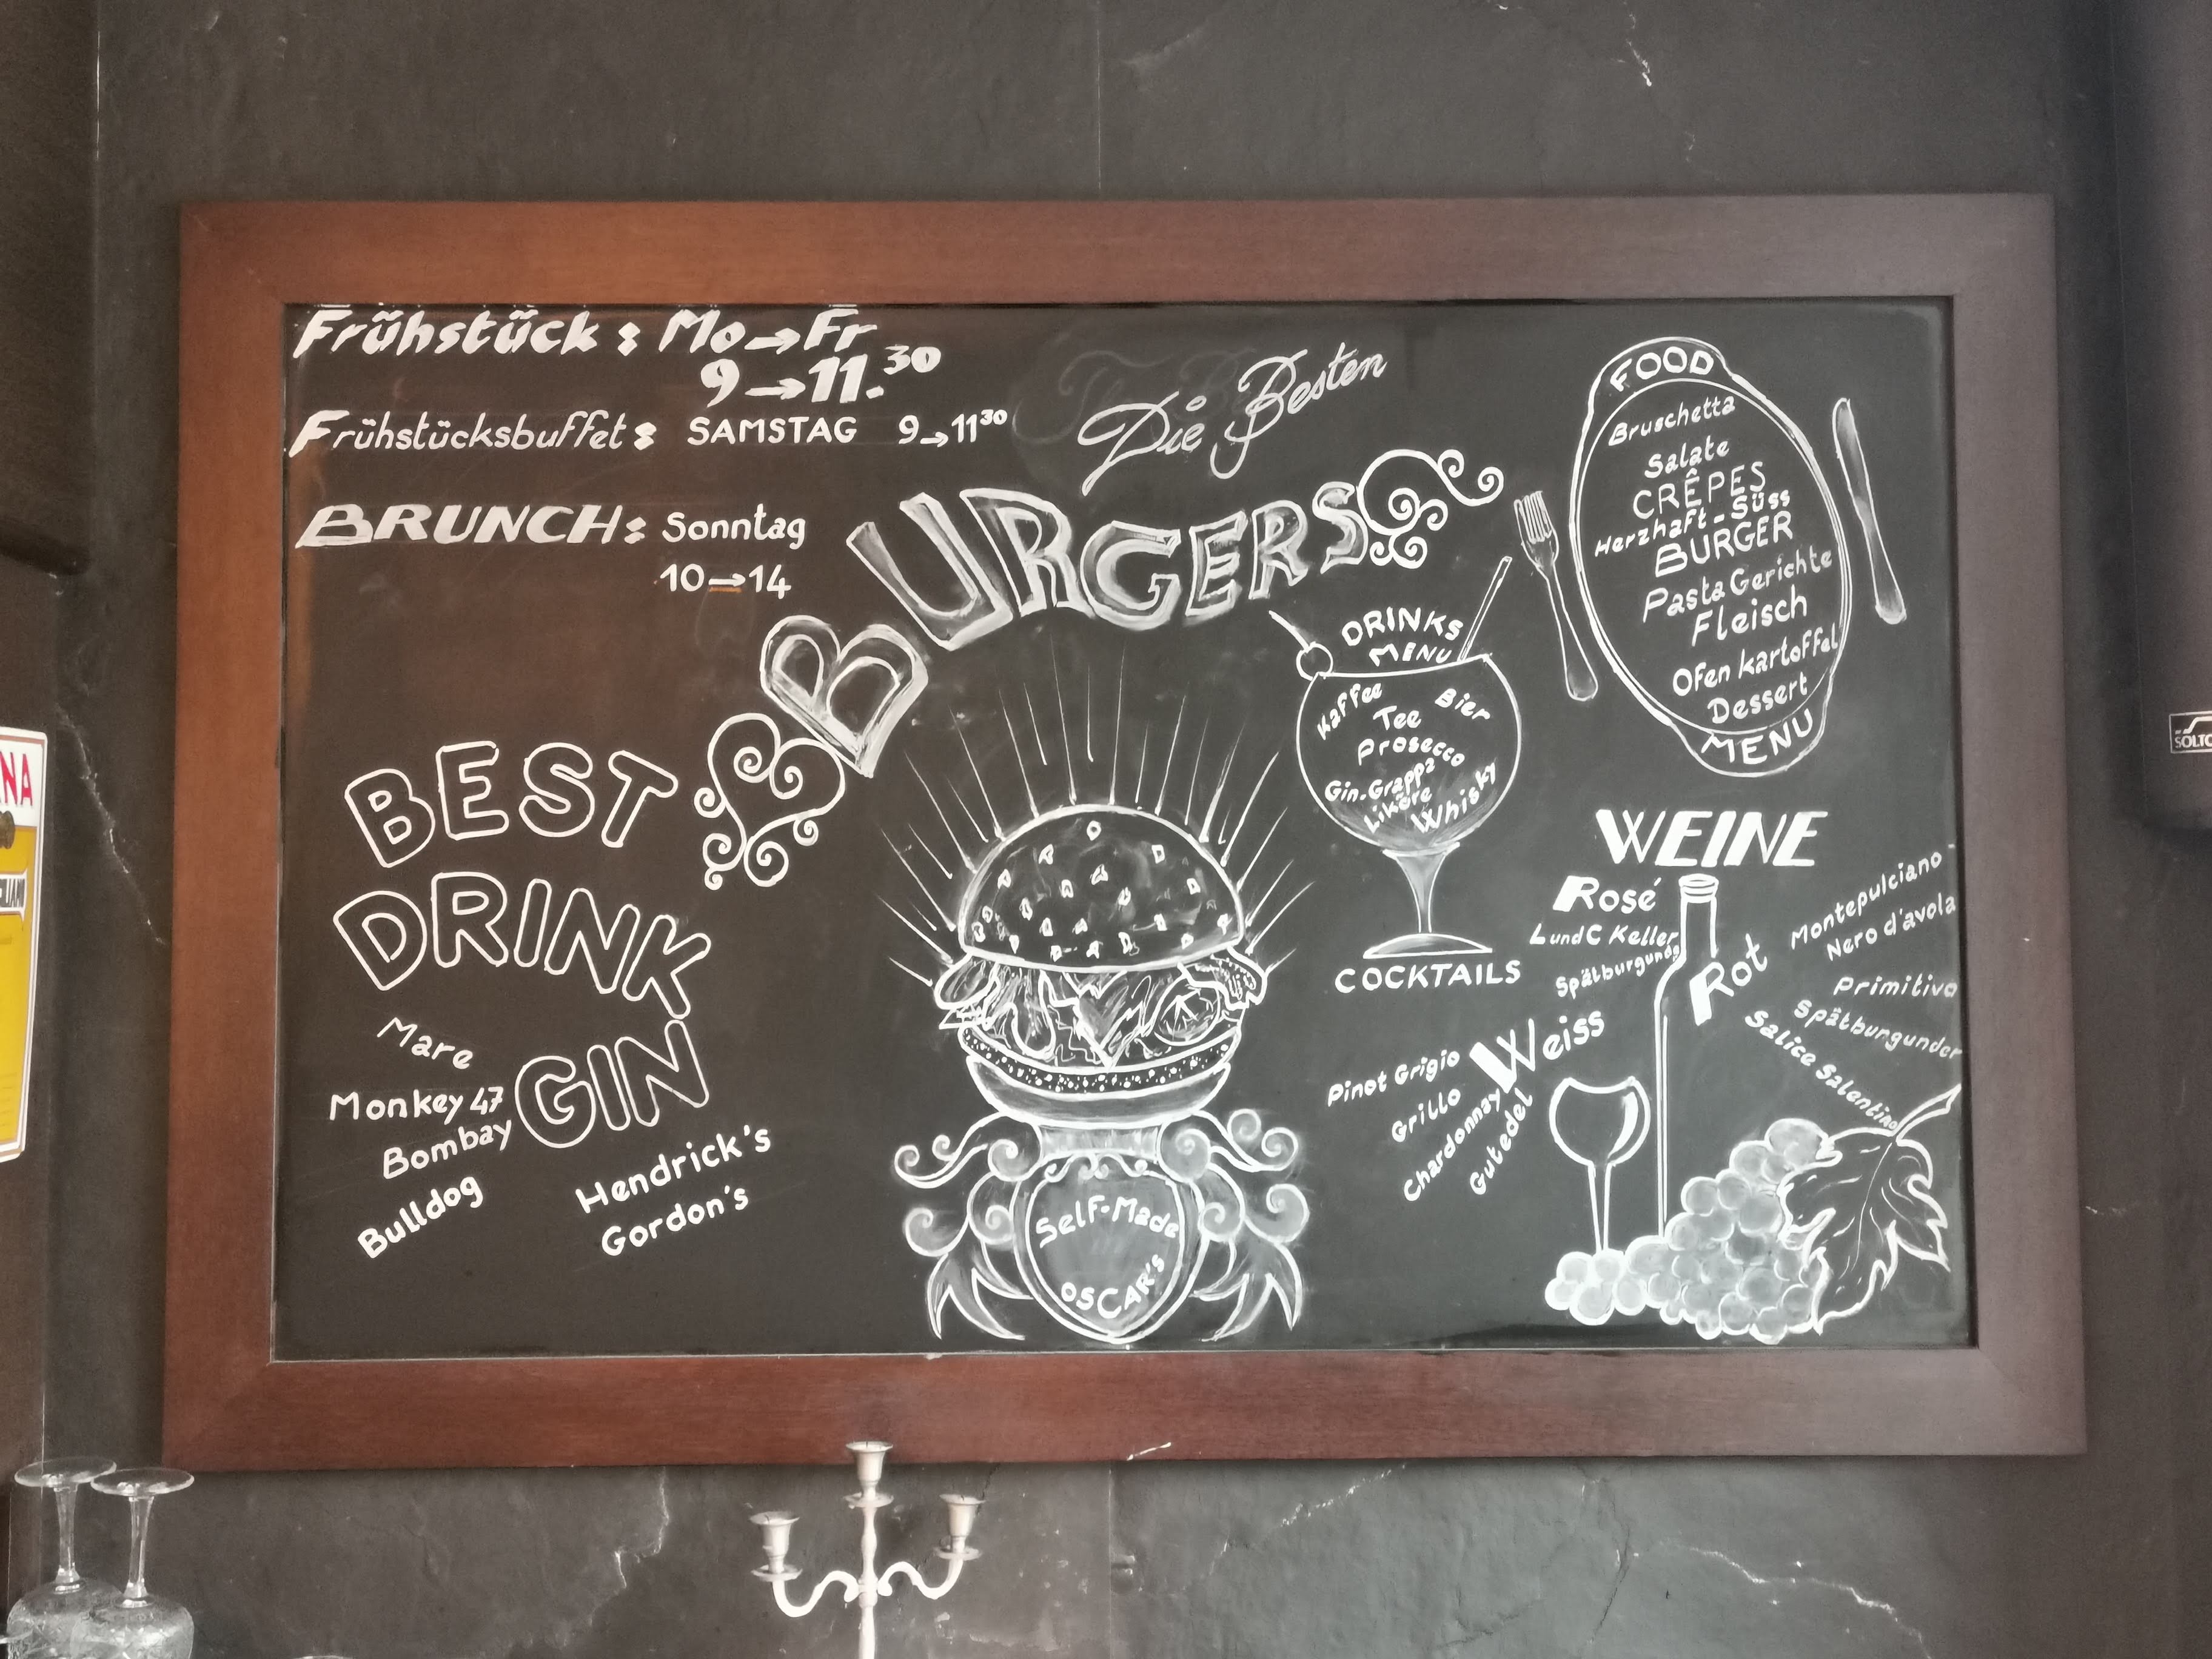 Frühstück: Mo→Fr
9→11.30
Frühstücksbuffet: SAMSTAG 9→11 30
BRUNCH: Sonntag
10→14
Die Besten
BURGERS
BEST
DRINK
GIN
Mare
Monkey 47
Bombay
Bulldog
Hendrick's
Gordon's
Self-Made
OSCAR'S
DRINKS
MENU
Kaffee
Bier
Tee
Prosecco
Gin-Grappa
Liköre
Whisky
COCKTAILS
FOOD
Bruschetta
Salate
CRÊPES
Herzhaft-Süss
BURGER
Pasta Gerichte
Fleisch
Ofen kartoffel
Dessert
MENU
WEINE
Rosé
L und C Keller
Weiss
Pinot Grigio
Grillo
Chardonnay
Gutedel
Rot
Montepulciano
Nero d'avola
Primitivo
Spätburgunder
Salice Salentino
NA